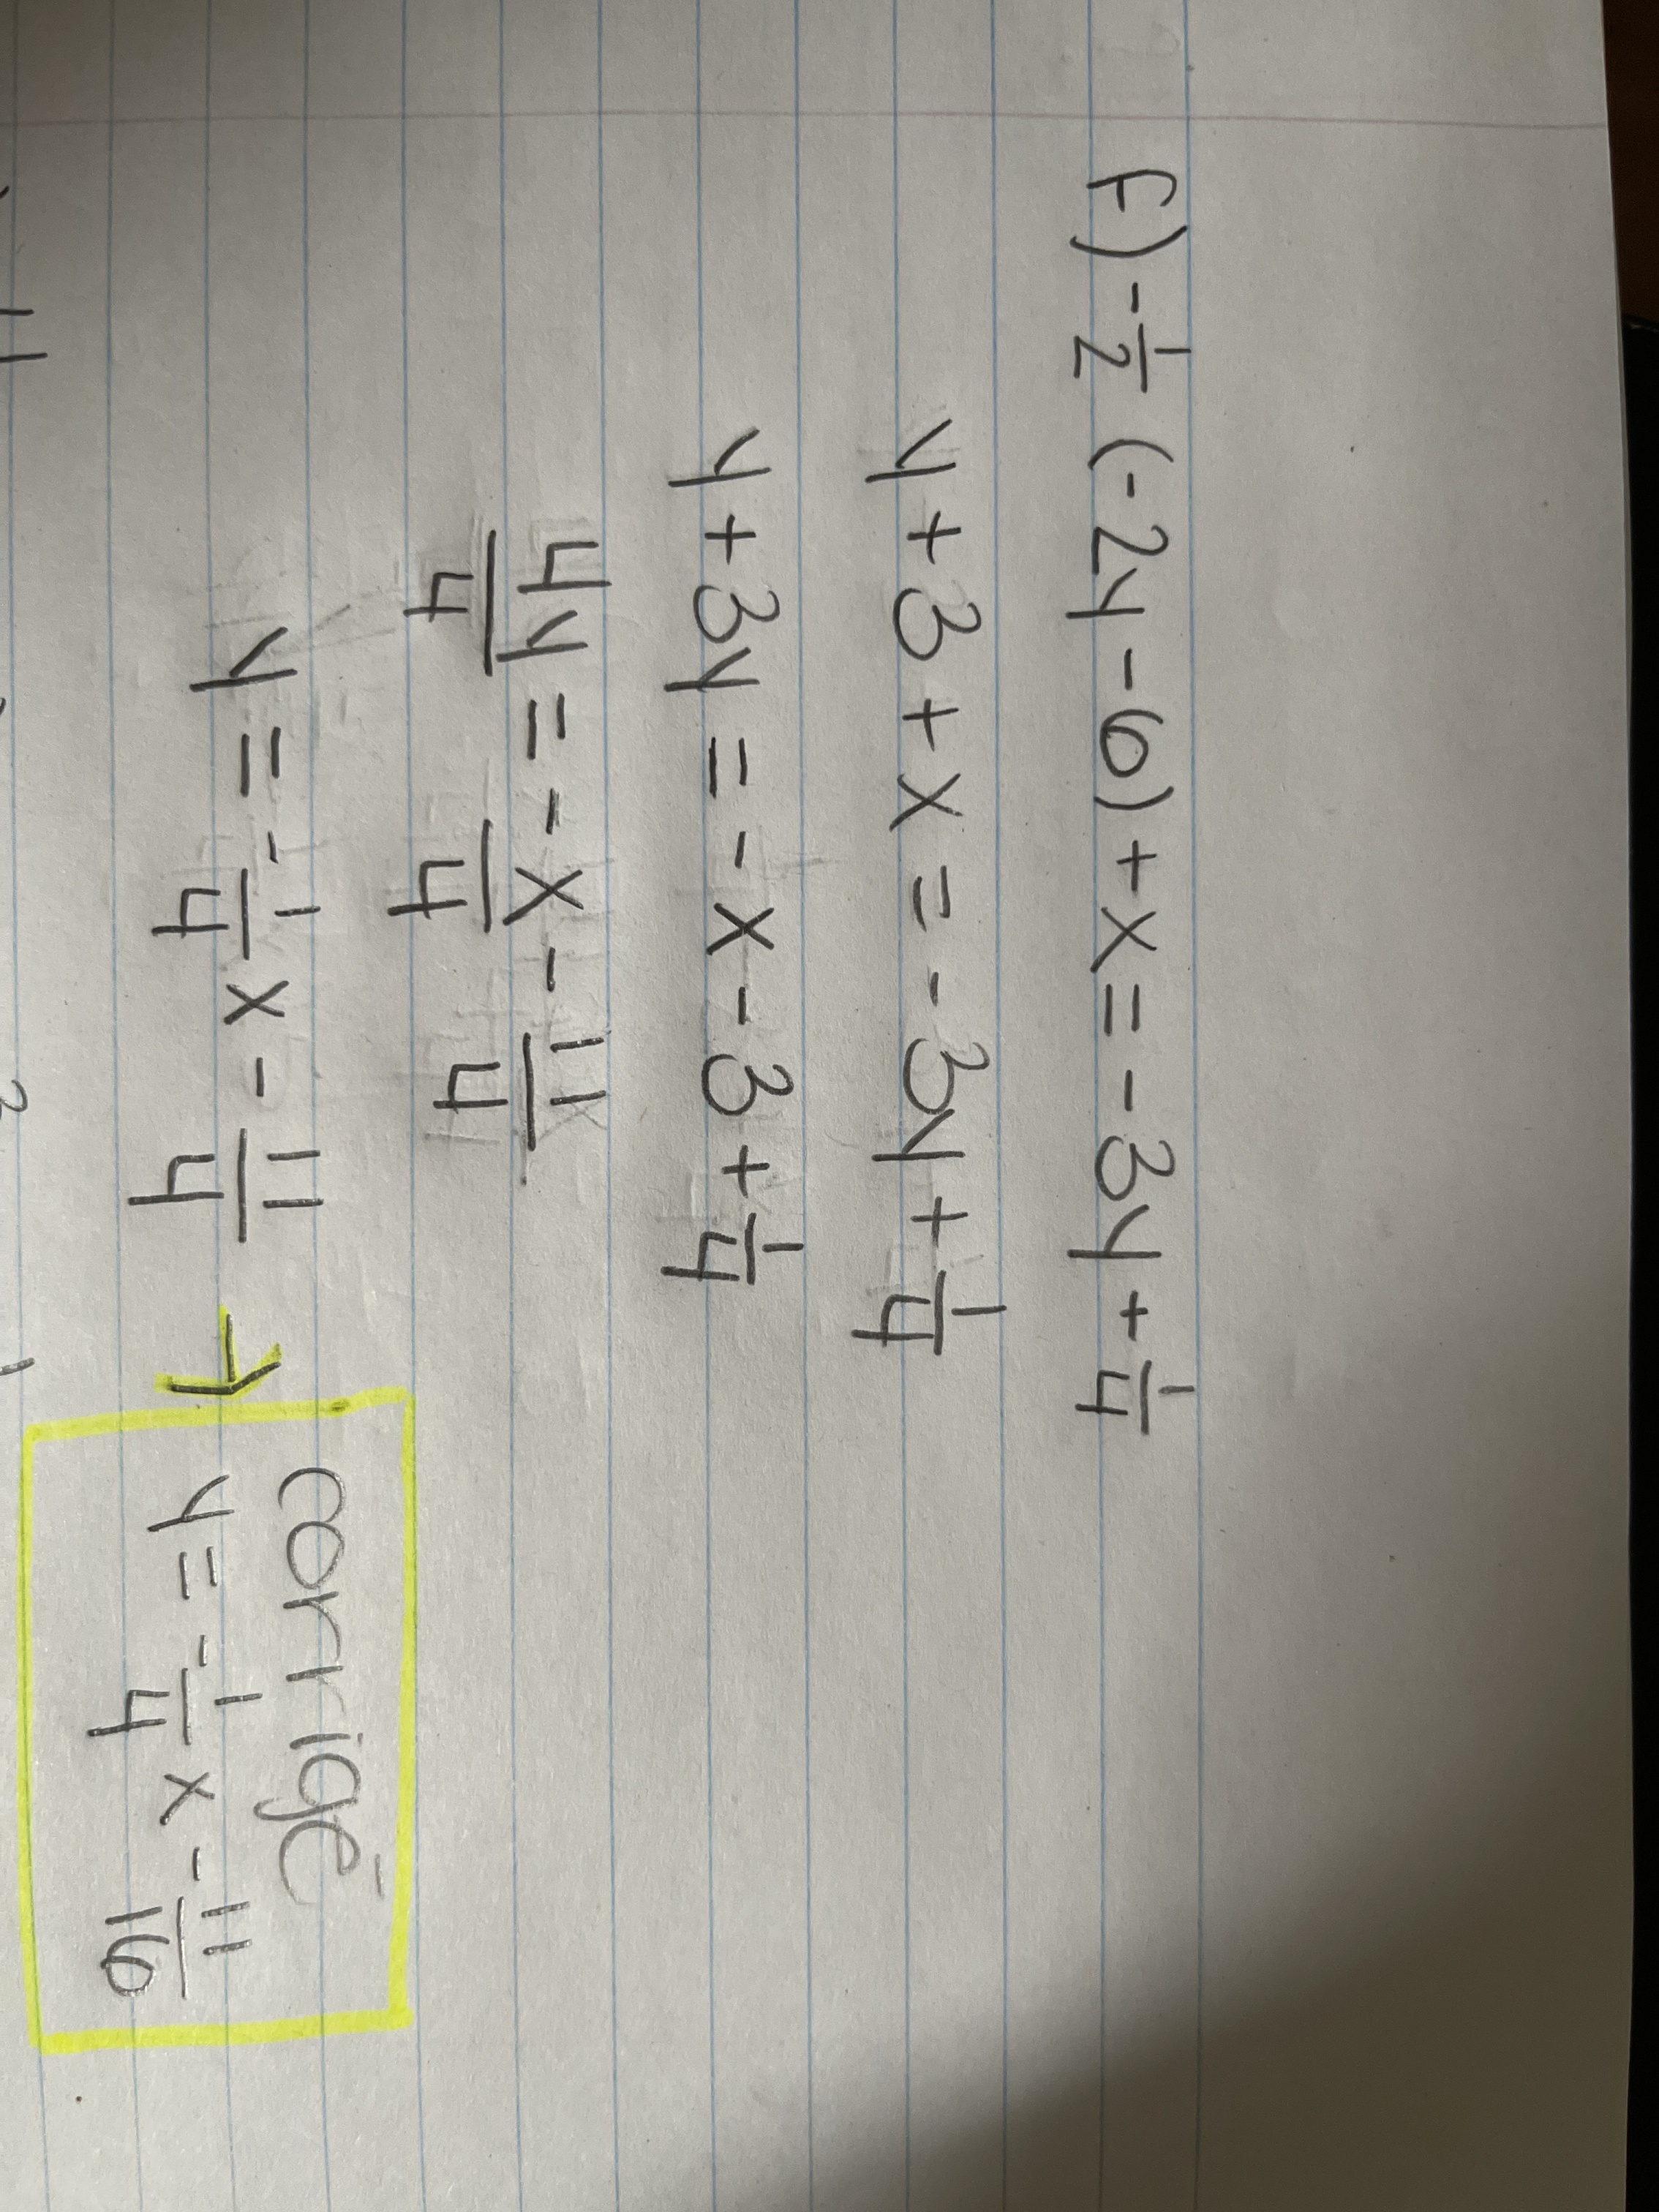 f) -1/2 (-2y - 6) + x = -3y + 1/4
y + 3 + x = -3y + 1/4
y + 3y = -x - 3 + 1/4
4y/4 = -x/4 - 11/4
y = -1/4 x - 11/4 →
corrigé
y = -1/4 x - 11/16